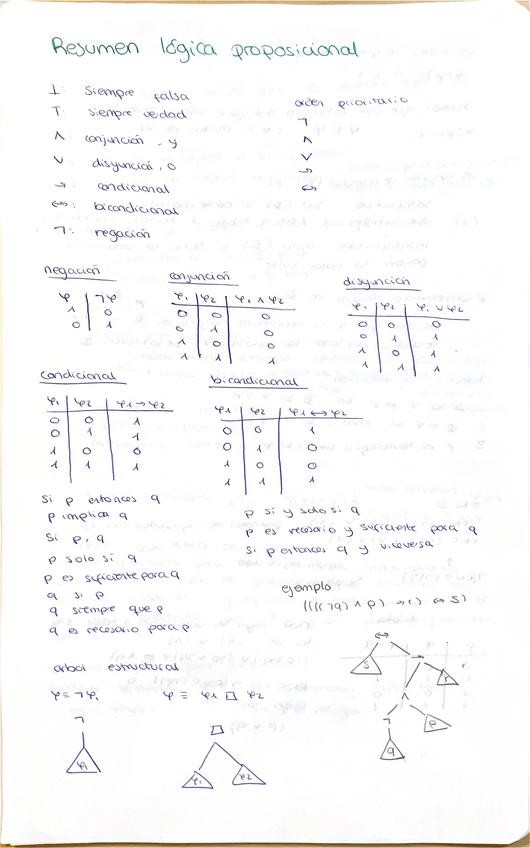 Resumen lógica proposicional
⊥: siempre falsa
T: siempre verdad
∧ conjunción, y
∨ disyunción, o
→: condicional
↔: bicondicional
¬: negación
orden prioritario
¬
∧
∨
→
↔
negación
φ ¬φ
1 0
0 1
conjunción
φ1 φ2 φ1 ∧ φ2
0 0 0
0 1 0
1 0 0
1 1 1
disyunción
φ1 φ2 φ1 ∨ φ2
0 0 0
0 1 1
1 0 1
1 1 1
condicional
φ1 φ2 φ1 → φ2
0 0 1
0 1 1
1 0 0
1 1 1
bicondicional
φ1 φ2 φ1 ↔ φ2
0 0 1
0 1 0
1 0 0
1 1 1
si p entonces q
p implica q
si p, q
p solo si q
p es suficiente para q
q si p
q siempre que p
q es necesario para p
p si y solo si q
p es necesario y suficiente para q
si p entonces q y viceversa
ejemplo
((((¬q) ∧ p) → r) ↔ s)
↔
s →
r
∧
¬ p
q
arbol estructural
φ = ¬φ1
¬
φ1
φ ≡ φ1 □ φ2
□
φ1 φ2